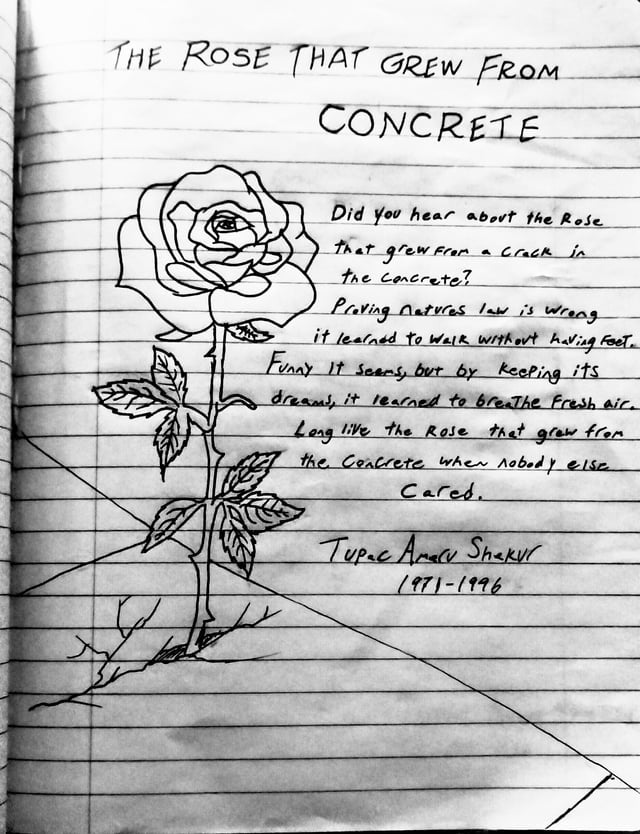 THE ROSE THAT GREW FROM
CONCRETE
Did you hear about the Rose
that grew from a crack in
the concrete?
Proving natures law is wrong
it learned to walk without having feet.
Funny it seems, but by keeping its
dreams, it learned to breathe fresh air.
Long live the Rose that grew from
the concrete when nobody else
Cared.
Tupac Amaru Shakur
1971-1996